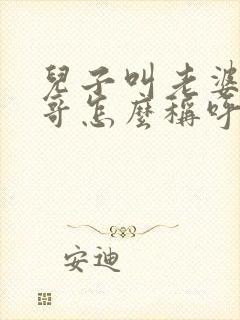 兒子叫老婆
哥怎麼稱呼
安迪